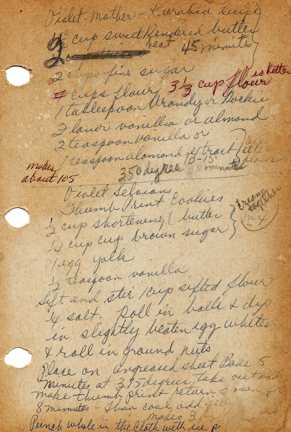 Violet - Mother - Kurabia Recipe
2 cup sweet Rendered butter
beat 45 minutes
2 cups fine sugar
4 cups flour 3 1/3 cup flour is better
1 tablespoon brandy or
Flavor vanilla or almond
2 teaspoon vanilla or
1 teaspoon almond extract
makes about 105
350 degree 10-15 minutes
Violet
Thumb Print Cookies
1/2 cup shortening & butter
1/4 cup cup brown sugar
Cream together
1 egg yolk
1/2 teaspoon vanilla
Sift and stir 1 cup sifted flour
1/4 salt. Roll in balls & dip
in slightly beaten egg whites
& roll in ground nuts
Place on ungreased sheet Bake 5
minutes at 375 degrees, take out and
make thumb print return to oven
8 minutes - Then cool add jell
makes 3
Punch whole in the cloth with ice p